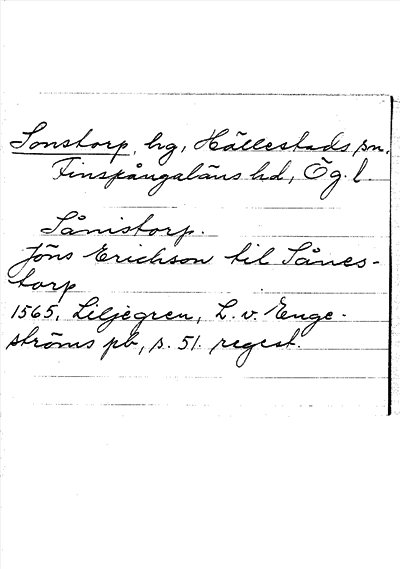 Sonstorp, hg, Hällestads sn.
Finspångaläns hd, Ög. l.
Sånistorp.
Jöns Erichson til Sånes-
torp
1565, Liljegren, L. v. Enge-
ströms pb, s. 51. regest.